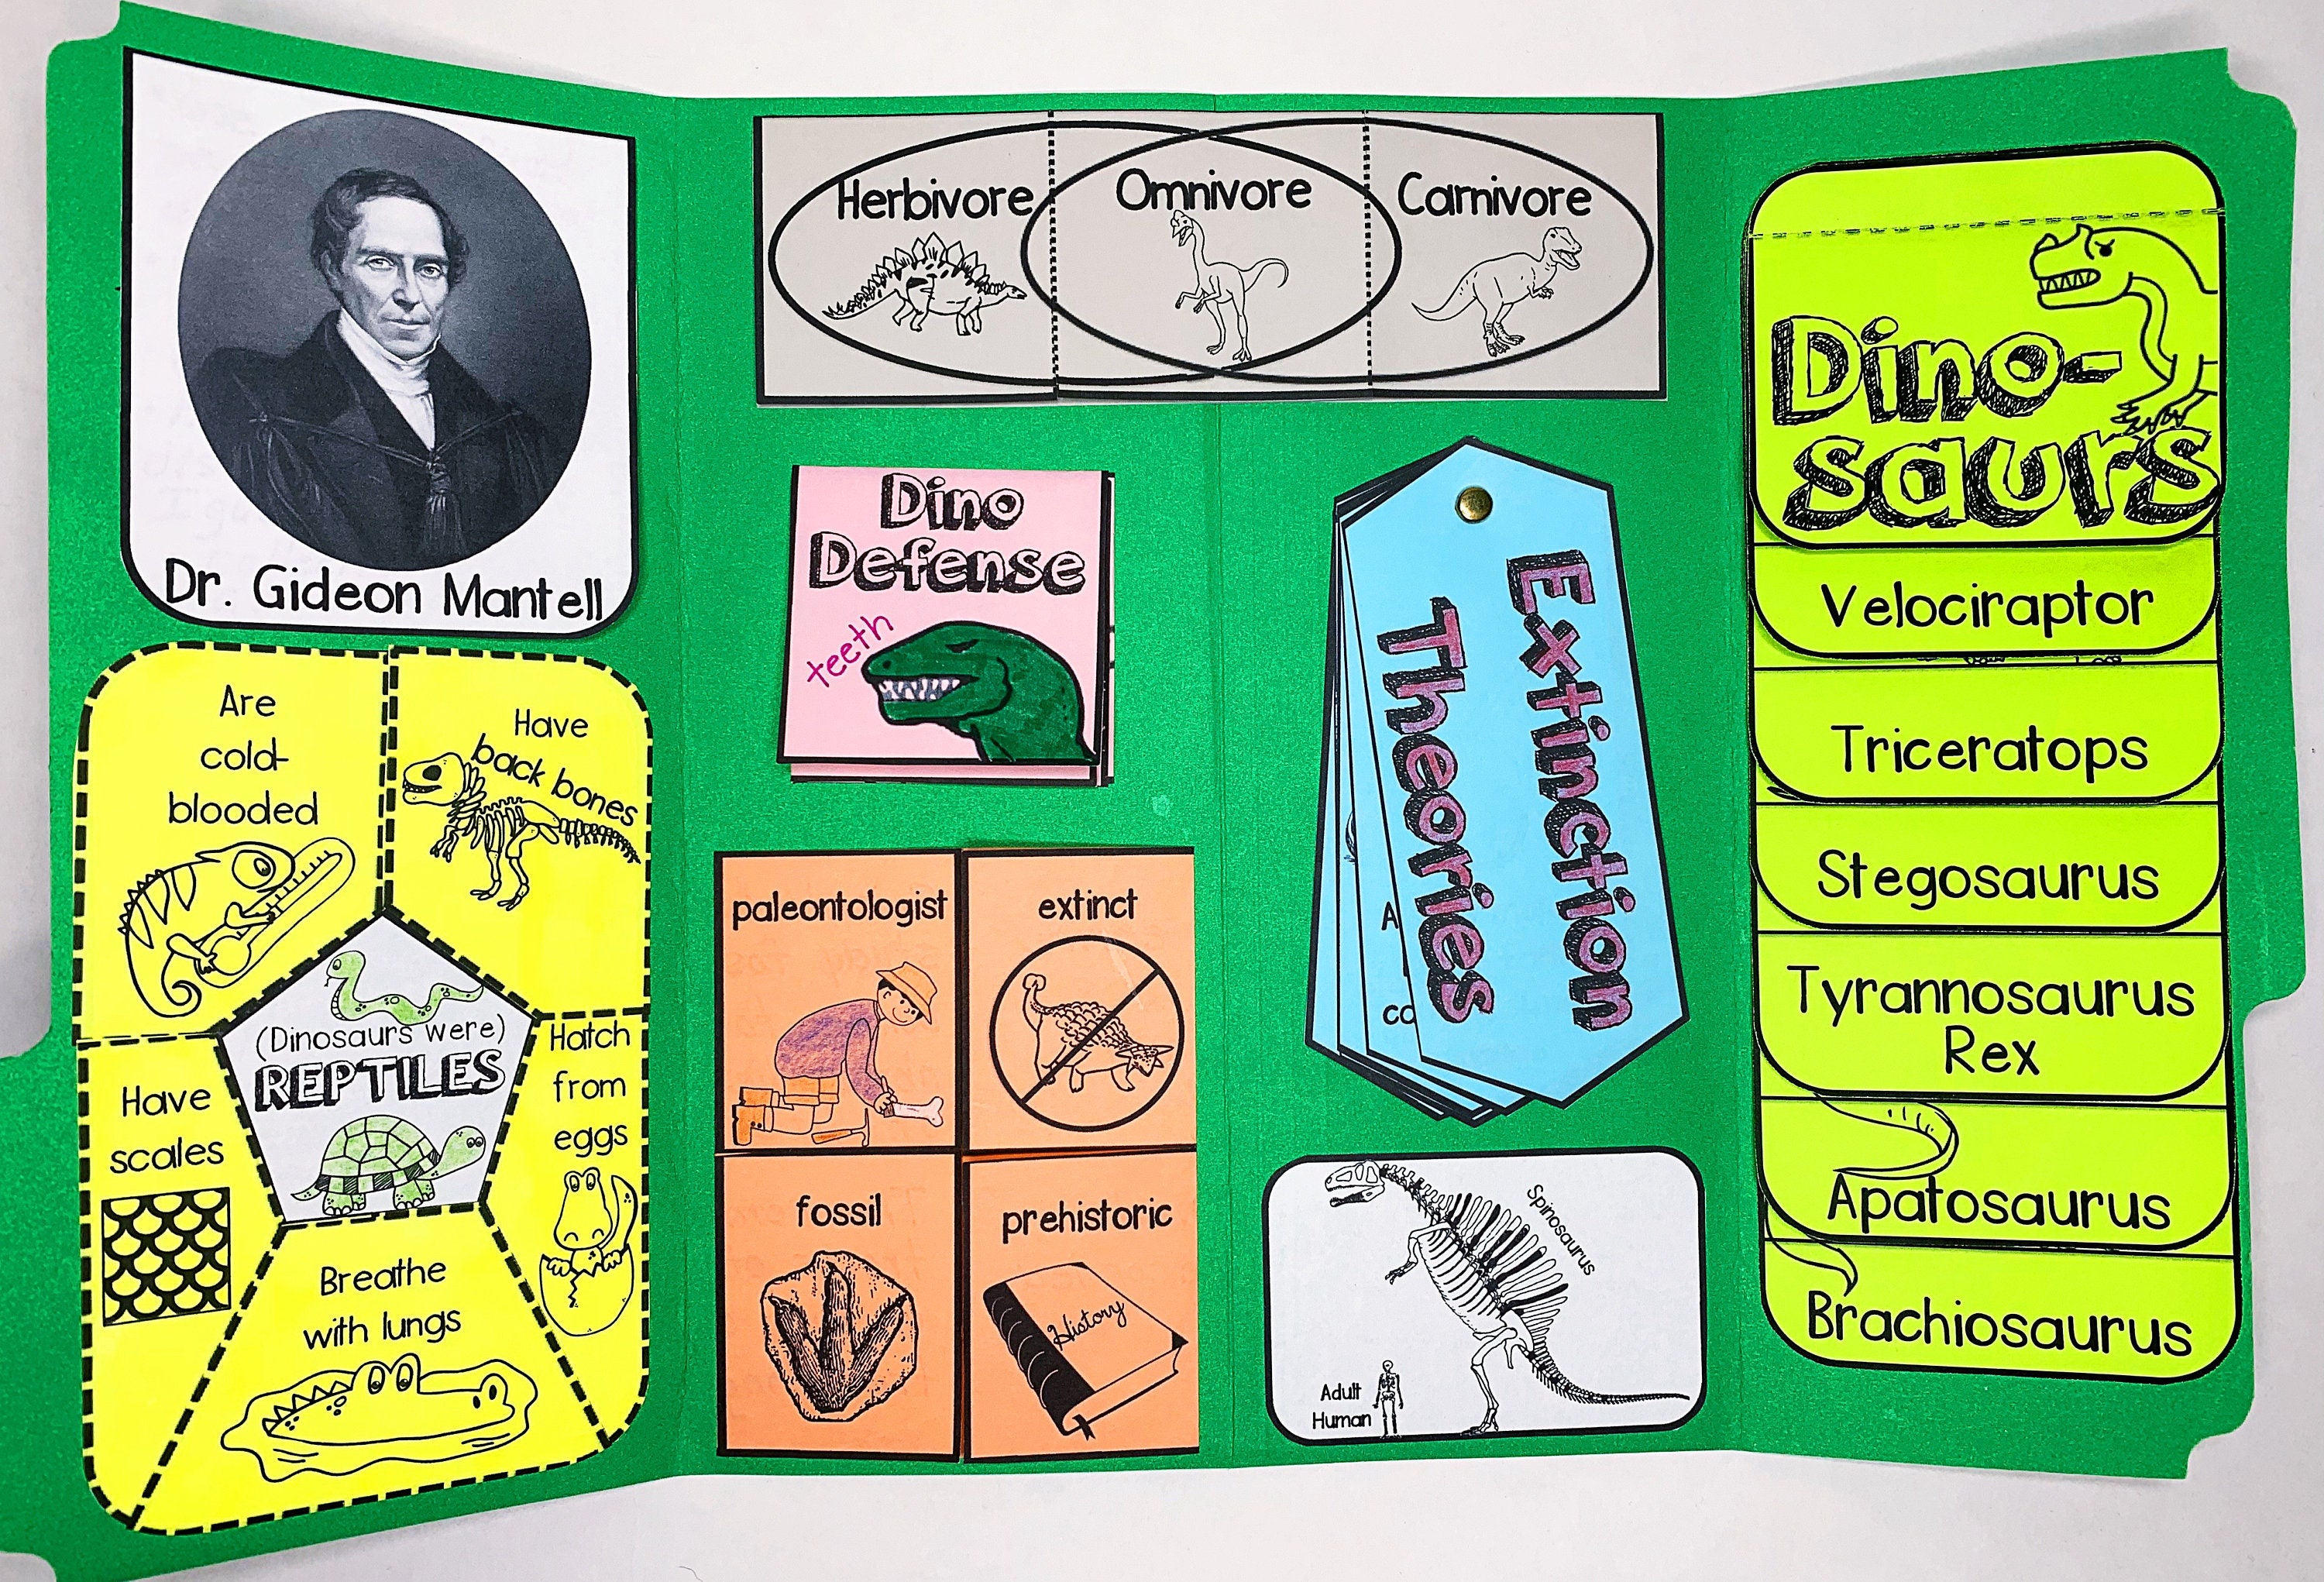 Dr. Gideon Mantell
Are
cold-
blooded
Have
back bones
(Dinosaurs were)
REPTILES
Have
scales
Hatch
from
eggs
Breathe
with lungs
Herbivore
Omnivore
Carnivore
Dino
Defense
teeth
paleontologist
extinct
fossil
prehistoric
History
Extinction
Theories
A
co
Spinosaurus
Adult
Human
Dino-
saurs
Velociraptor
Triceratops
Stegosaurus
Tyrannosaurus
Rex
Apatosaurus
Brachiosaurus